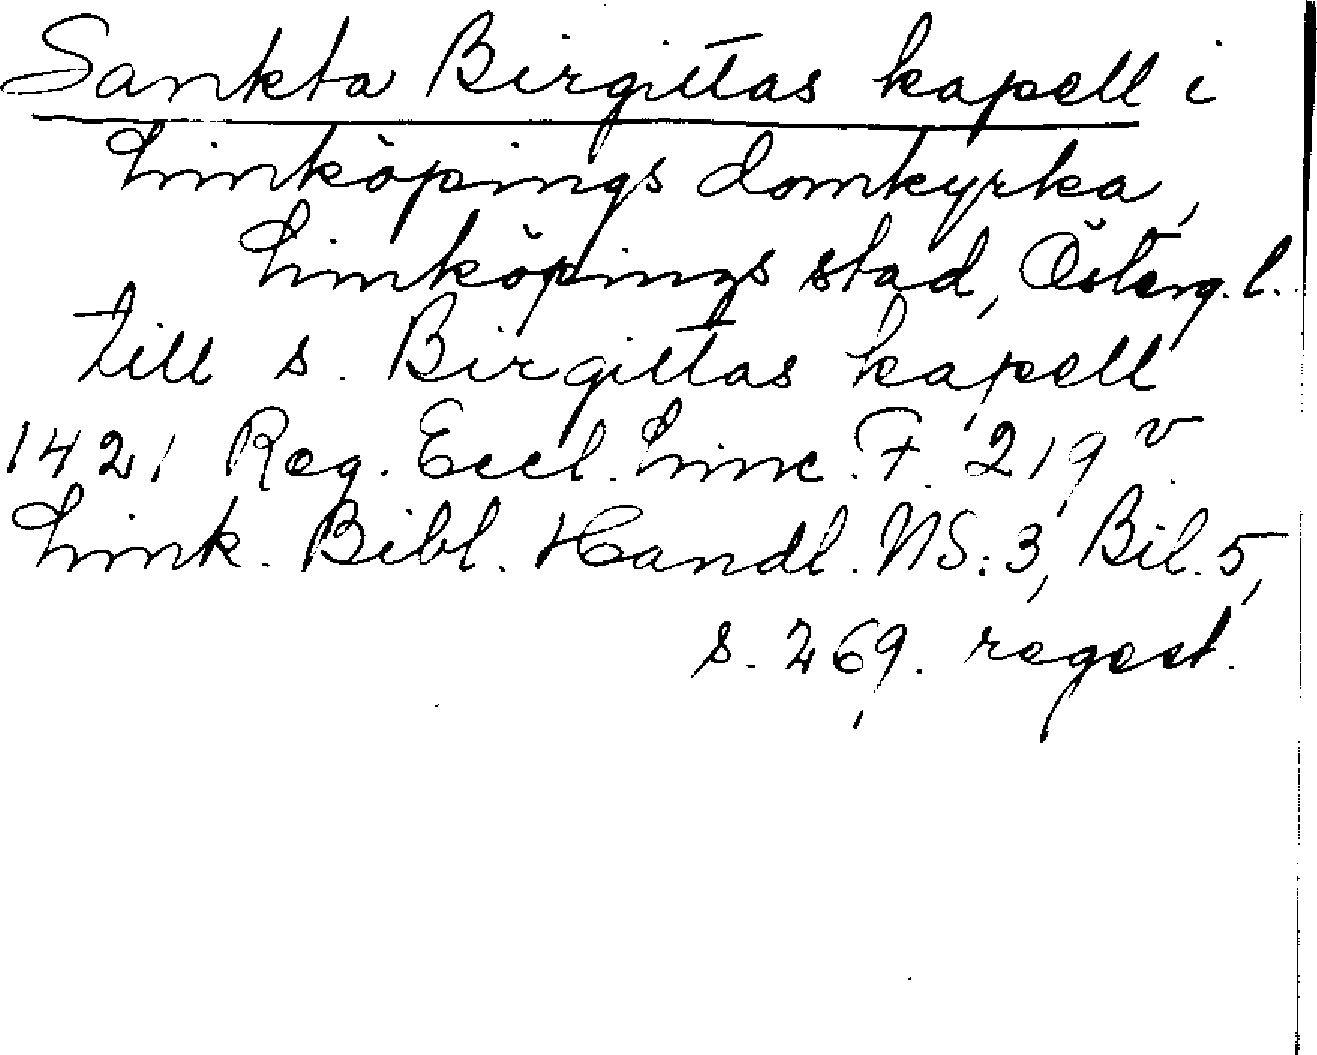 Sankta Birgittas kapell i
Linköpings domkyrka,
Linköpings stad, Österg.l.
till s. Birgittas kapell
1421 Reg. Eccl. Linc. F. 219 v.
Link. Bibl. Handl. NS: 3, Bil. 5,
s. 269. regest.